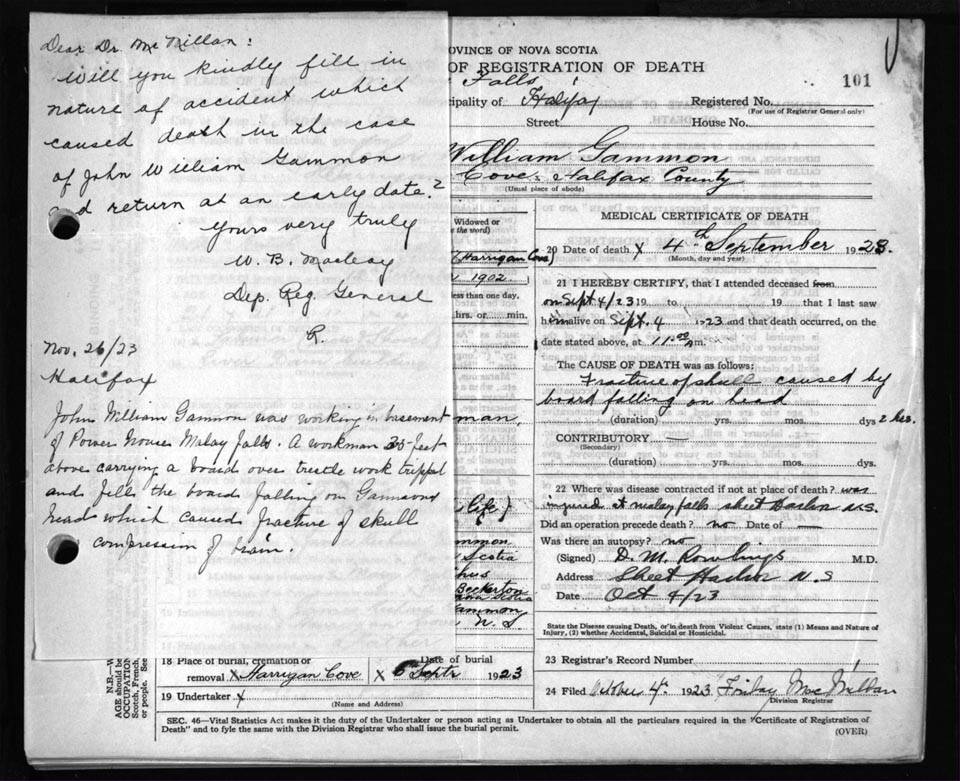 Dear Dr. McMillan:
Will you kindly fill in
nature of accident which
caused death in the case
of John William Gammon
d return at an early date?
Yours very truly
W. B.
Dep. Reg. General
R.
Nov. 26/23
Halifax
John William Gammon was working in basement
of Power House Malay falls. A workman 35 feet
above carrying a board over trestle work tripped
and fell the board falling on Gammons
head which caused fracture of skull
compression of brain.
OVINCE OF NOVA SCOTIA
OF REGISTRATION OF DEATH
101
Falls
cipality of Halifax Registered No.
(For use of Registrar General only)
Street: House No.
William Gammon
Cove, Halifax County
(Usual place of abode)
Widowed or
the word)
(Harrigan Cove)
1902
less than one day.
hrs. or min.
man,
life)
mmon
Scotia
Beckerton
Nova Scotia
Gammon
N. S.
MEDICAL CERTIFICATE OF DEATH
20 Date of death X 4th September 1923.
(Month, day and year)
21 I HEREBY CERTIFY, that I attended deceased from
on Sept 4/23 19 to 19 that I last saw
him alive on Sept. 4 1923 and that death occurred, on the
date stated above, at 11 m.
The CAUSE OF DEATH was as follows:
Fracture of skull caused by
board falling on head
(duration) yrs. mos. dys 2 hrs.
CONTRIBUTORY —
(Secondary)
(duration) yrs. mos. dys.
22 Where was disease contracted if not at place of death? was
injured at malay falls sheet Harbor N.S.
Did an operation precede death? no Date of
Was there an autopsy? no
(Signed) D. M. Rowlings M.D.
Address Sheet Harbor N.S
Date Oct 4/23
State the Disease causing Death, or in death from Violent Causes, state (1) Means and Nature of
Injury, (2) whether Accidental, Suicidal or Homicidal.
23 Registrar's Record Number
24 Filed October 4th 1923 Finlay MacMillan
Division Registrar
N.B.—W
AGE should be
OCCUPATION
Scotch, French,
or people. See
18 Place of burial, cremation or Date of burial
removal X Harrigan Cove X 6 Septr 1923
19 Undertaker X
(Name and Address)
SEC. 46—Vital Statistics Act makes it the duty of the Undertaker or person acting as Undertaker to obtain all the particulars required in the "Certificate of Registration of
Death" and to fyle the same with the Division Registrar who shall issue the burial permit.
(OVER)